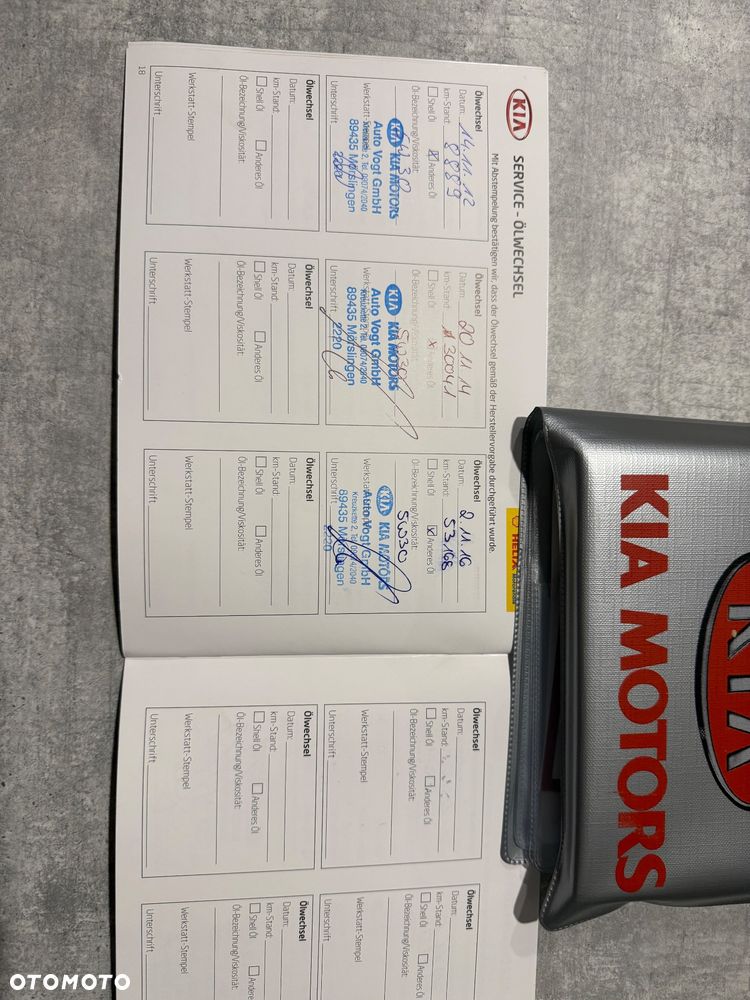 KIA
SERVICE - ÖLWECHSEL
Mit Abstempelung bestätigen wir, dass der Ölwechsel gemäß der Herstellervorgabe durchgeführt wurde.
Ölwechsel
Datum: 14.11.12
km-Stand: 8889
Shell Öl Anderes Öl
Öl-Bezeichnung/Viskosität:
5W30
KIA KIA MOTORS
Auto Vogt GmbH
89435 Mörslingen
Unterschrift
Ölwechsel
Datum: 20 11 14
km-Stand: 30041
Shell Öl Anderes Öl
Öl-Bezeichnung/Viskosität:
5W30
KIA KIA MOTORS
Auto Vogt GmbH
Kreuzkette 2, Tel. 09074/2040
89435 Mörslingen
Unterschrift 2220
Ölwechsel
Datum: 2 11 16
km-Stand: 53.168
Shell Öl Anderes Öl
Öl-Bezeichnung/Viskosität:
5W30
KIA KIA MOTORS
Auto Vogt GmbH
Kreuzkette 2, Tel. 09074/2040
89435 Mörslingen
2220
Unterschrift
Ölwechsel
Datum:
km-Stand:
Shell Öl Anderes Öl
Öl-Bezeichnung/Viskosität:
Werkstatt-Stempel
Unterschrift
Ölwechsel
Datum:
km-Stand:
Shell Öl Anderes Öl
Öl-Bezeichnung/Viskosität:
Werkstatt-Stempel
Unterschrift
Ölwechsel
Datum:
km-Stand:
Shell Öl Anderes Öl
Öl-Bezeichnung/Viskosität:
Werkstatt-Stempel
Unterschrift
18
HELIX
Ölwechsel
Datum:
km-Stand:
Shell Öl Anderes Öl
Öl-Bezeichnung/Viskosität:
Werkstatt-Stempel
Unterschrift
Ölwechsel
Datum:
km-Stand:
Shell Öl Anderes Öl
Öl-Bezeichnung/Viskosität:
Werkstatt-Stempel
Unterschrift
Ölwechsel
Datum:
km-Stand:
Shell Öl Anderes Öl
Öl-Bezeichnung/Viskosität:
Werkstatt-Stempel
Unterschrift
Ölwechsel
Datum:
km-Stand:
Shell Öl Anderes Öl
Öl-Bezeichnung/Viskosität:
Werkstatt-Stempel
Unterschrift
KIA
KIA MOTORS
OTOMOTO